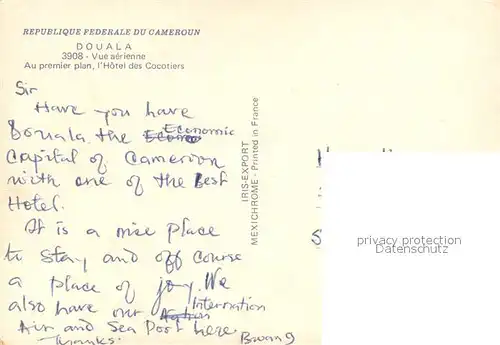 REPUBLIQUE FEDERALE DU CAMEROUN
DOUALA
3908 - Vue aérienne
Au premier plan, l'Hôtel des Cocotiers
Sir
Have you have
Douala the Economic
Capital of Cameroon
with one of the best
Hotel.
It is a nice place
to stay and off course
a place of joy. We
also have our Internation
Air and Sea Port here
Thanks.
IRIS-EXPORT
MEXICHROME - Printed in France
privacy protection
Datenschutz